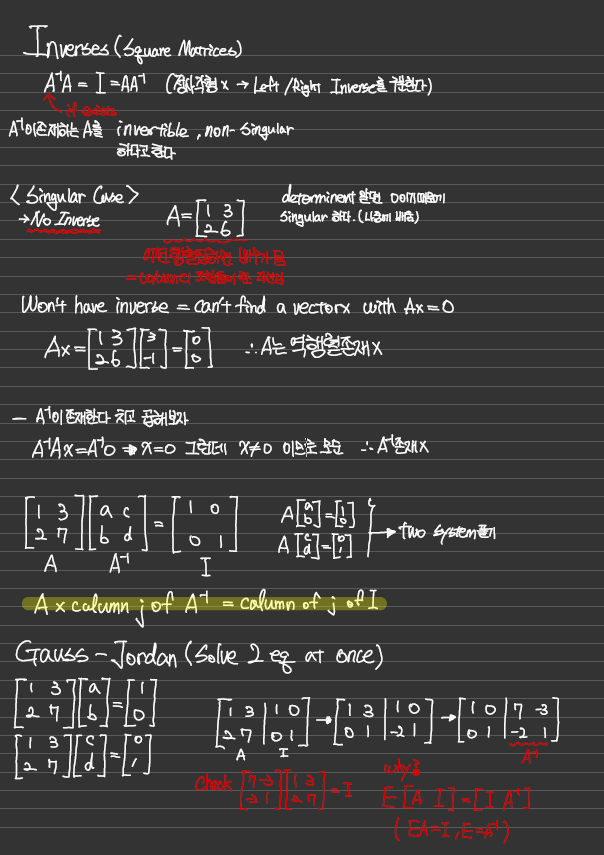 Inverses (Square Matrices)
A⁻¹A = I = AA⁻¹ (정사각형 x → Left / Right Inverse를 구한다)
if exists
A⁻¹이 존재하는 A를 invertible, non-singular
하다고 한다
<Singular Case>
→ No Inverse
A = [1 3; 2 6]
determinent 관련 0이기 때문에
singular 하다. (나중에 배움)
Won't have inverse = can't find a vector x with Ax = 0
Ax = [1 3; 2 6] [3; -1] = [0; 0] ∴ A는 역행렬 존재 X
- A⁻¹이 존재한다 치고 곱해보자
A⁻¹Ax = A⁻¹0 → x = 0 그런데 x ≠ 0 이므로 모순 ∴ A⁻¹ 존재 X
[1 3; 2 7] [a c; b d] = [1 0; 0 1]
A A⁻¹ I
A [a; b] = [1; 0]
A [c; d] = [0; 1]
→ two system 풀기
A x column j of A⁻¹ = column of j of I
Gauss - Jordan (solve 2 eq at once)
[1 3; 2 7] [a; b] = [1; 0]
[1 3; 2 7] [c; d] = [0; 1]
[1 3 | 1 0; 2 7 | 0 1] → [1 3 | 1 0; 0 1 | -2 1] → [1 0 | 7 -3; 0 1 | -2 1]
A I A⁻¹
Check [7 -3; -2 1] [1 3; 2 7] = I
why?
E [A I] = [I A⁻¹]
(EA = I, E = A⁻¹)